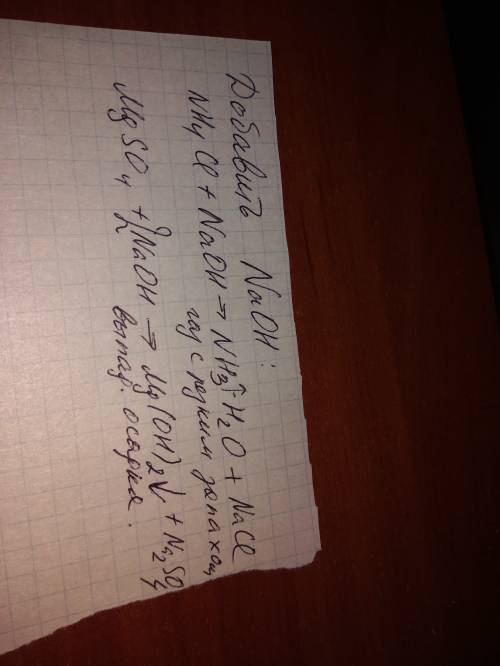 Добавить NaOH:
NH4Cl + NaOH → NH3↑ H2O + NaCl
газ с резким запахом
MgSO4 + 2NaOH → Mg(OH)2↓ + Na2SO4
выпад. осадка.